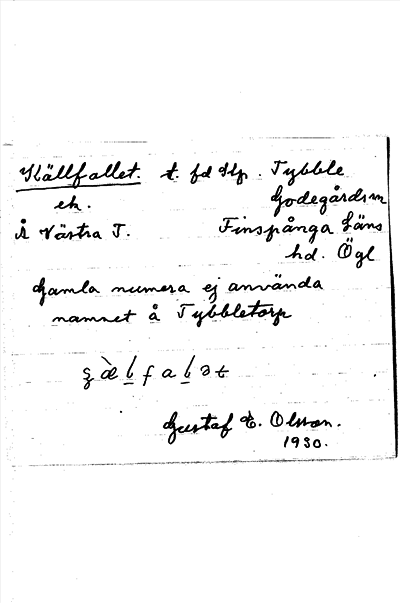 Källfallet. t. fd Hp. Tybble
ek. Godegårds sn
å Västra T. Finspånga Läns
hd. Ögl
Gamla numera ej använda
namnet å Tybbletorp
falət
Gustaf E. Olsson.
1930.